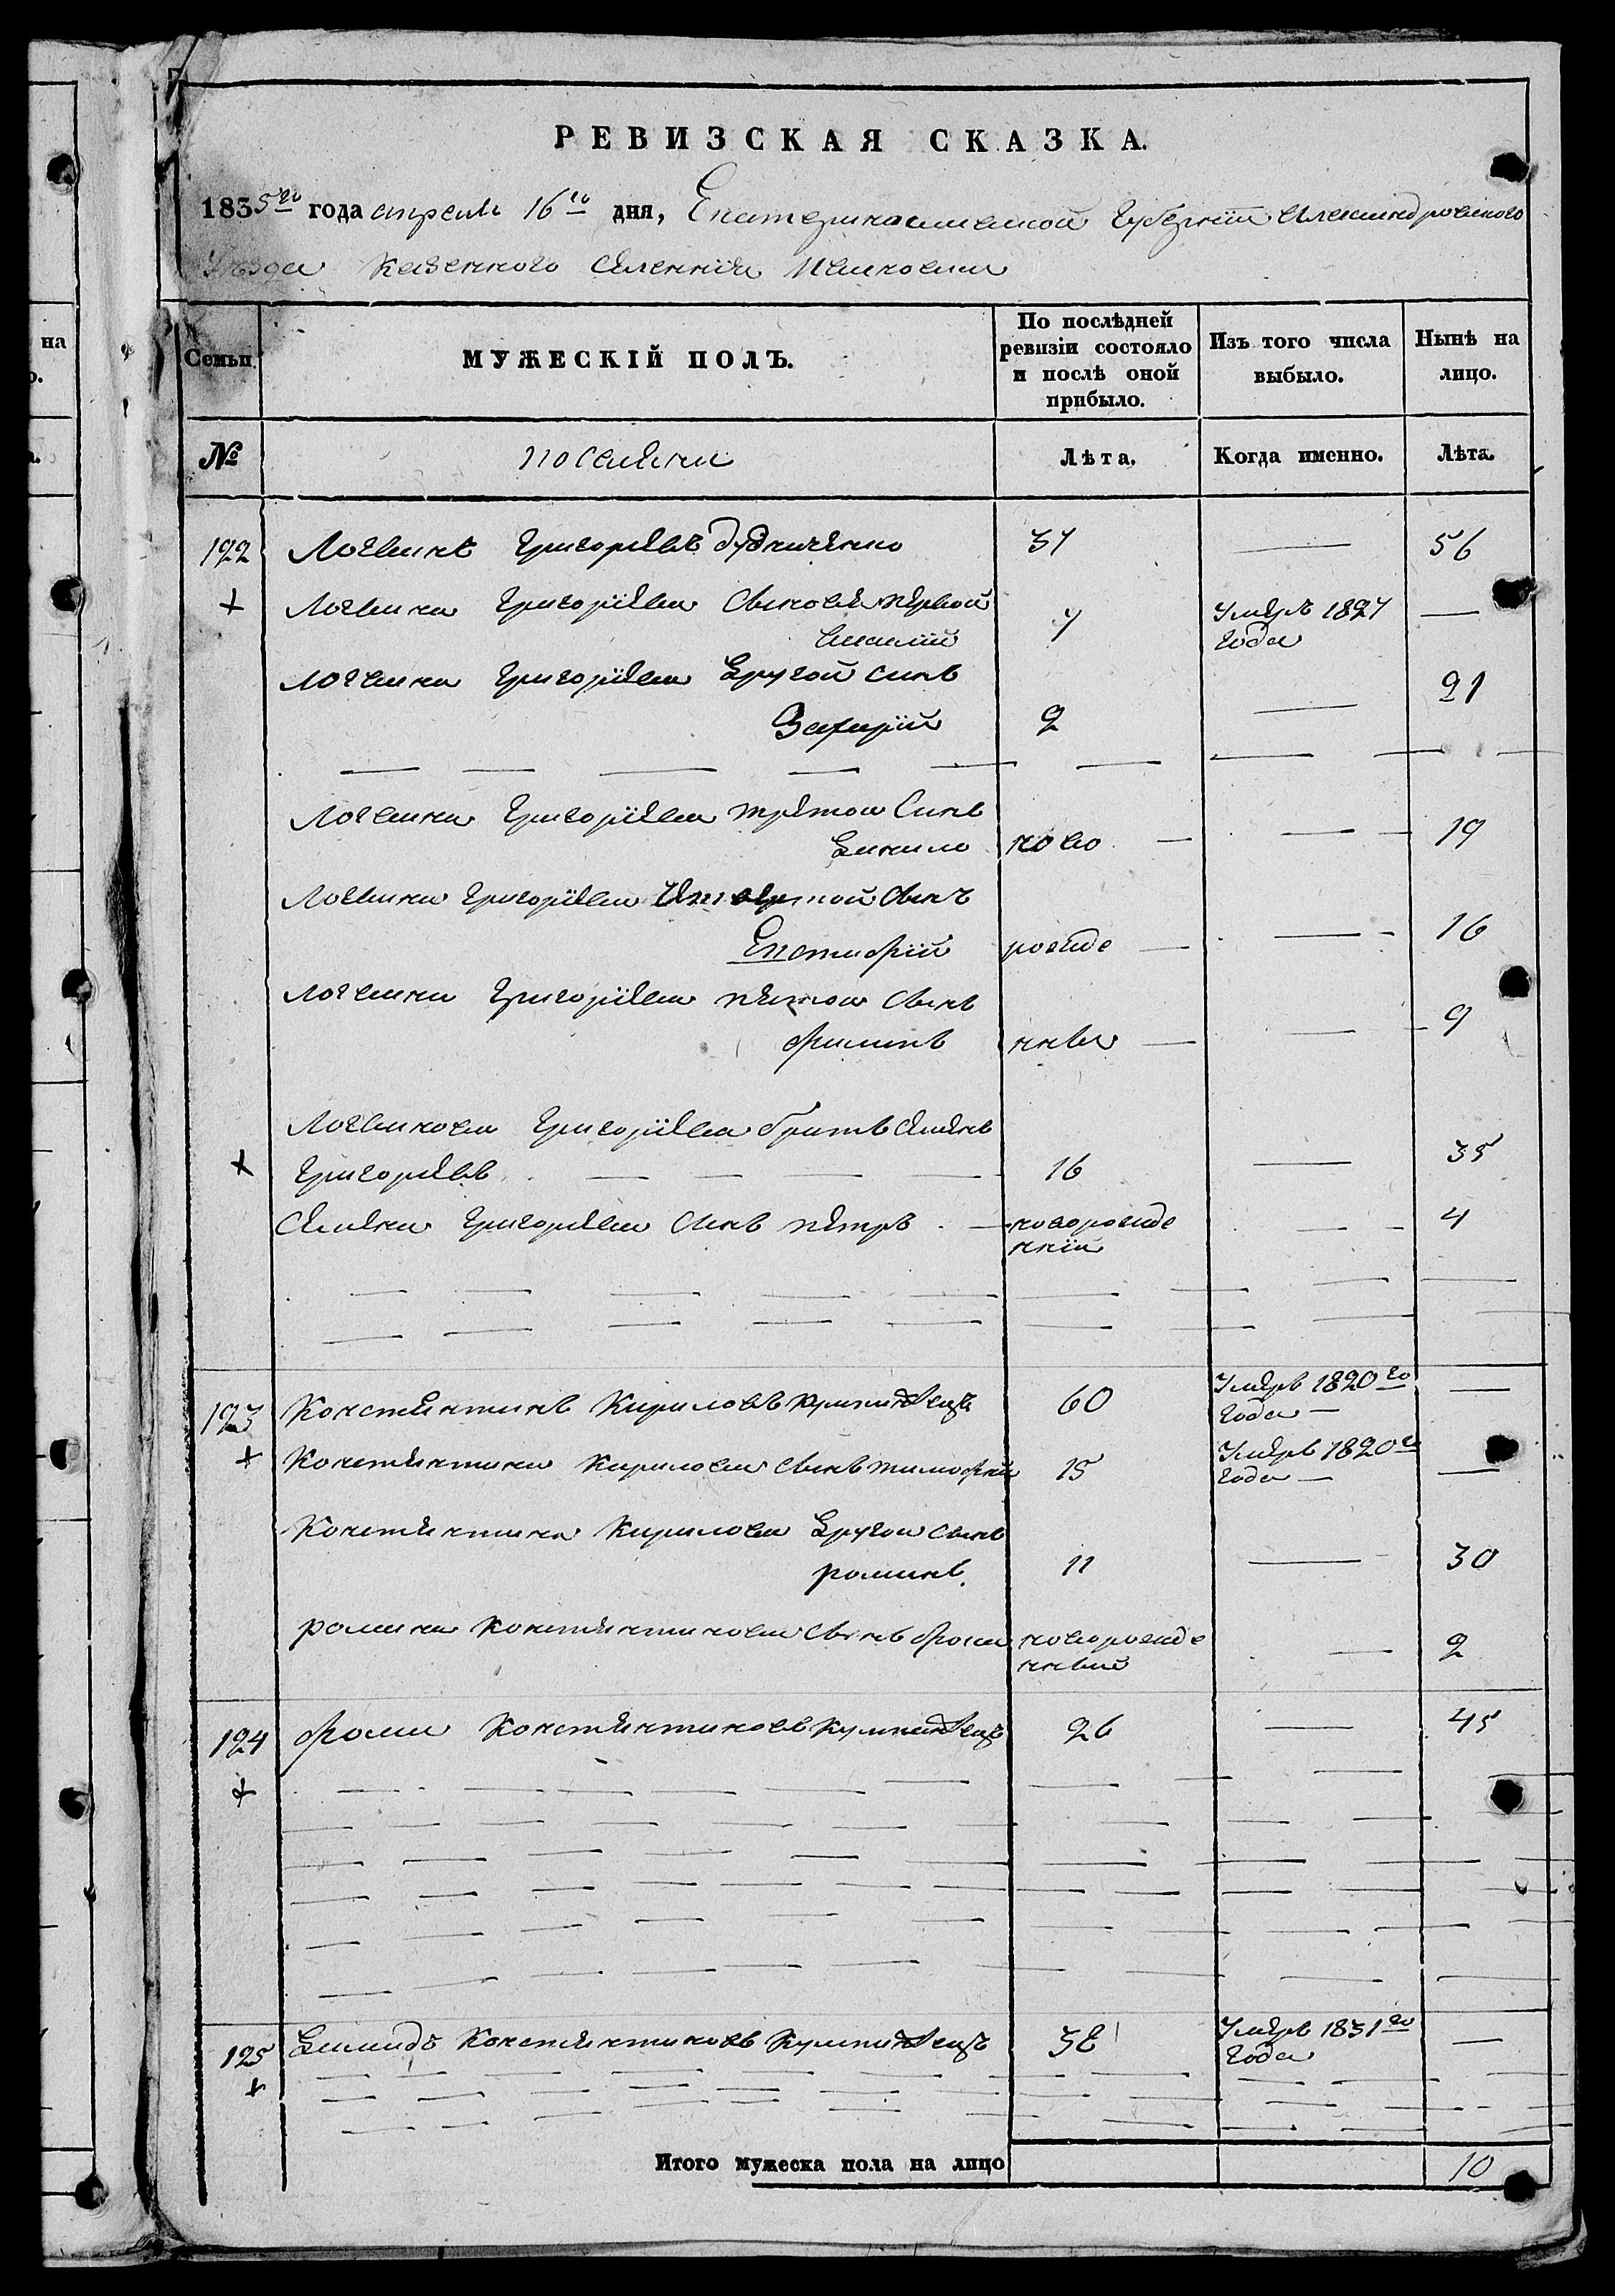 на
РЕВИЗСКАЯ СКАЗКА.
1835го года апреля 16го дня, Екатеринославской Губернии Александровского
Уезда Казенного Селения
Семьи МУЖЕСКІЙ ПОЛЪ. По послѣдней ревизіи состояло и послѣ оной прибыло. Изъ того числа выбыло. Нынѣ на лицо.
№ поселяни Лѣта. Когда именно. Лѣта.
192 Логвинъ Григорьевъ Дудниченко 37 — 56
+ Логвина Григорїева Синовья первой
Василїй 7 Умеръ 1827 года —
Логвина Григорїева Другой синъ
Захарїй 2 — 21
Логвина Григорїева третой Синъ
Данило ново — 19
Логвина Григорїева Четвертой Синъ
Евстафїй рожде — 16
Логвина Григорїева пятой Синъ
Филипъ нные — 9
Логвинова Григорїева братъ Семенъ
+ Григорьевъ 16 — 35
Семена Григорьева Синъ петръ новорожде нний — 4
193 Констянтинъ Кириловъ 60 Умеръ 1820го года — —
+ Констянтина Кирилова Синъ тимофей 15 Умеръ 1820го года — —
Констянтина Кирилова Другой Синъ
романъ 11 — 30
романа Констянтинова Синъ фома новорожде нный — 2
194 фома Констянтиновъ 26 — 45
+
195 Демидъ Констянтиновъ 38 Умеръ 1831го года —
+
Итого мужеска пола на лицо 10